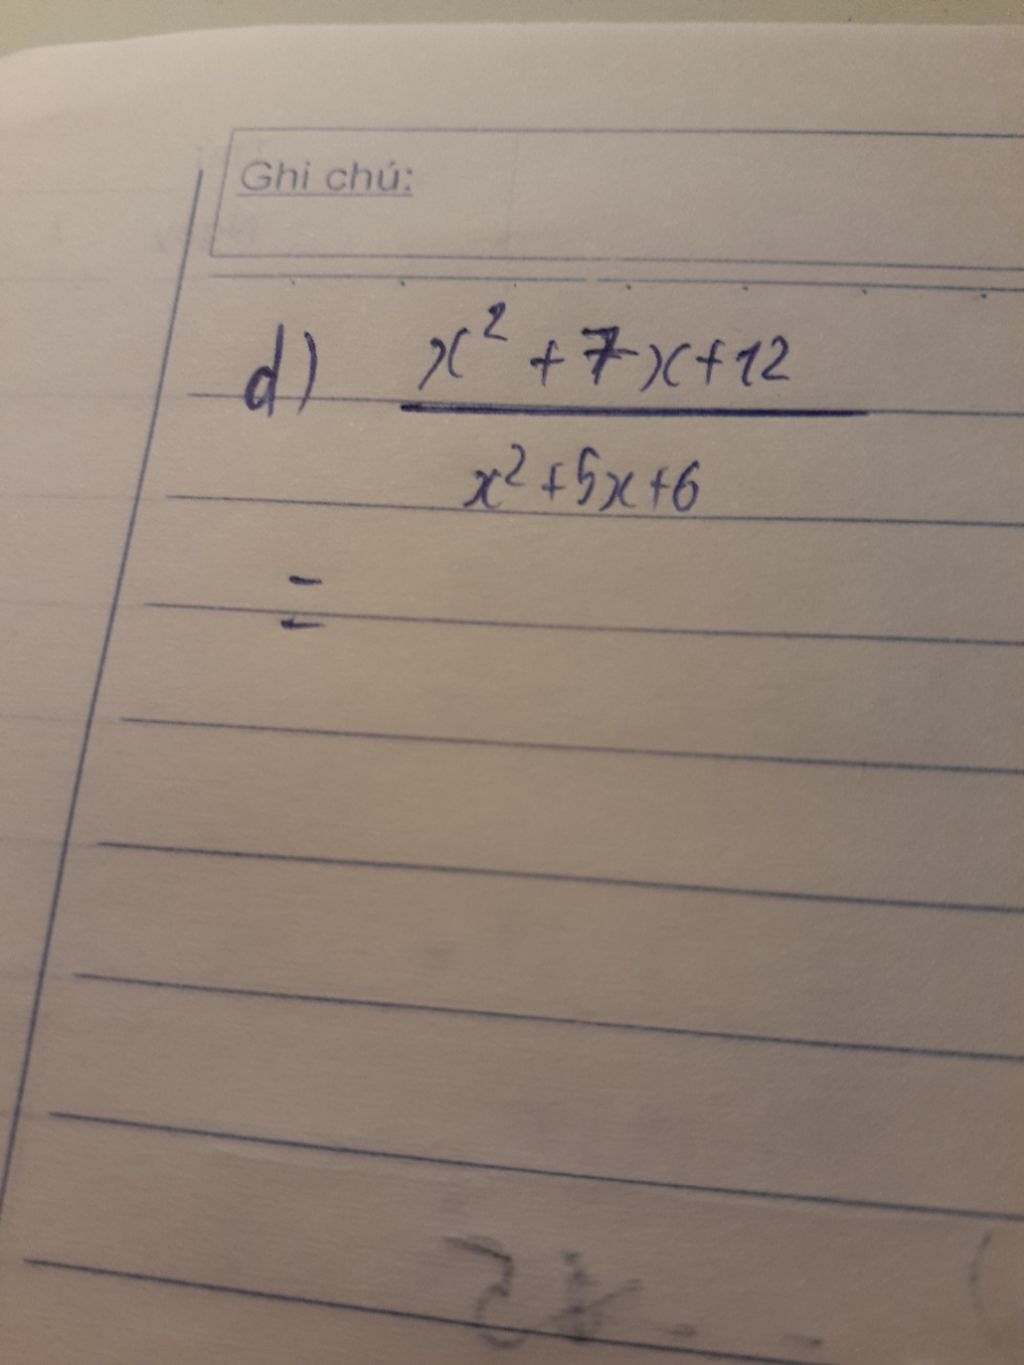 Ghi chú:
d) x² + 7x + 12
x² + 5x + 6
=